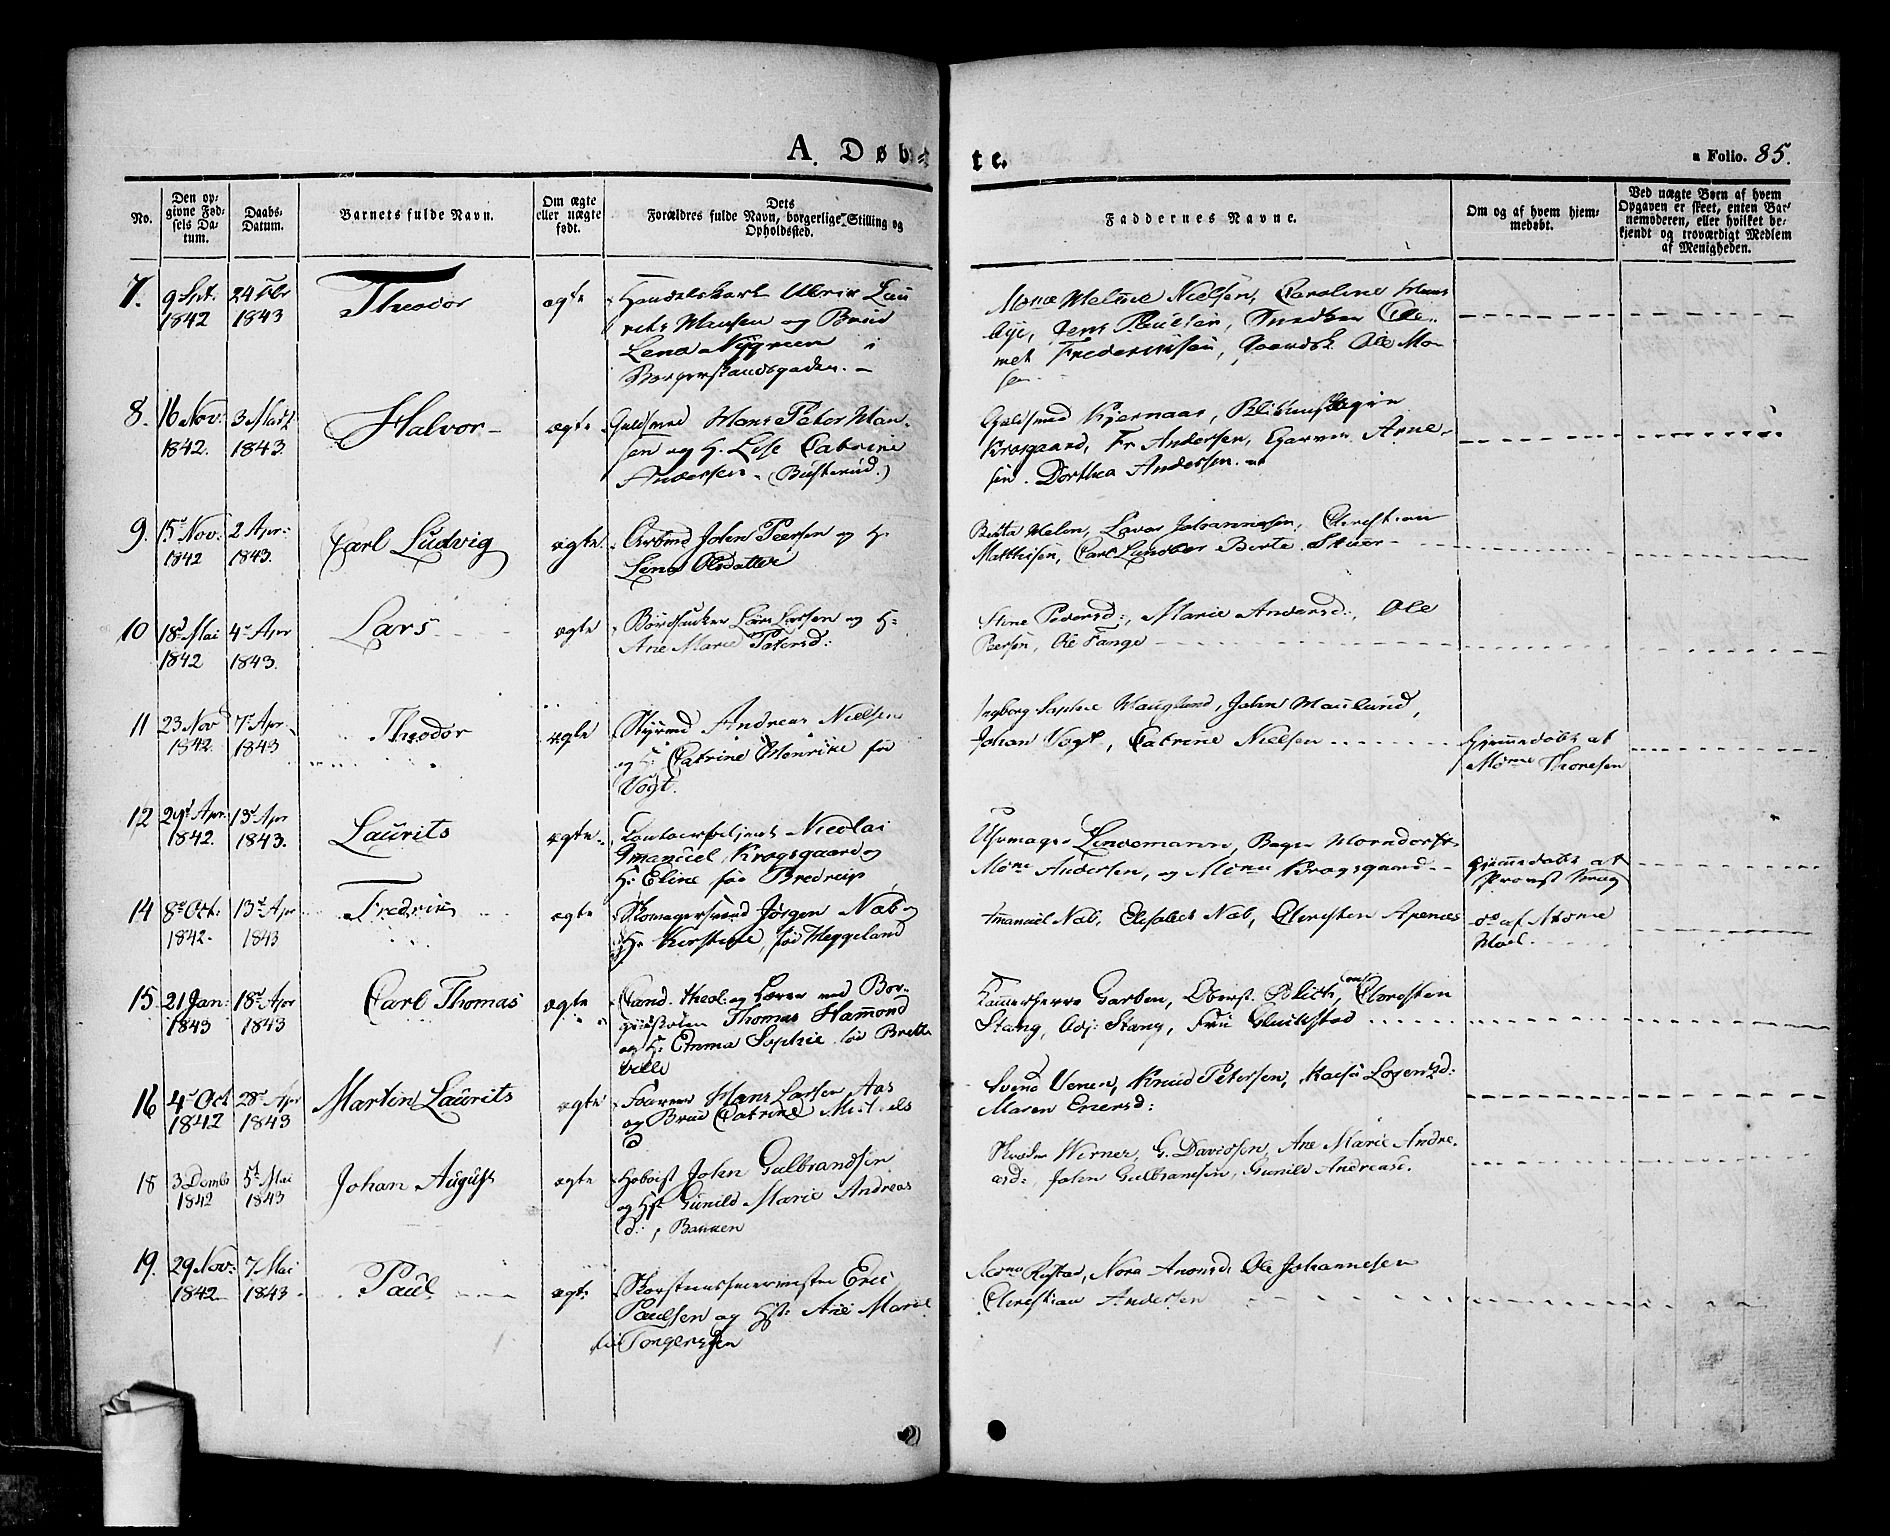 A. Døb=
te.
a Folio. 85.
No.
Den op-
givne Fød-
sels Da-
tum.
Daabs-
Datum.
Barnets fulde Navn.
Om ægte
eller uægte
født.
Dets
Forældres fulde Navn, borgerlige Stilling og
Opholdssted.
Faddernes Navne.
Om og af hvem hjem-
medøbt.
Ved uægte Børn af hvem
Opgaven er skeet, enten Bar-
nemoderen, eller hvilket be-
kjendt og troværdigt Medlem
af Menigheden.
7. 9 Spt. 1842
24 Febr 1843
Theodor
ægte
Handelskarl Ulrik Lau
rits Hansen og Brud
Lena Nygreen i
Borgerstandsgaden.
Nielsen, Caroline Hans
Jens Paulsen, Snedker
Frederiksen, Ole Mo-
sen.
8. 16 Nov: 1842.
3 Marts 1843.
Halvor
ægte
Guldsmed Hans Peter Han-
sen og H. Lise Catrine
Andersen (Busterud.)
Guldsmed Kjernaas,
Krogsgaard, Fr Andersen, Garver Arne-
sen. Dorthea Andersen.
9. 15d Nov: 1842
2 Apr: 1843.
Carl Ludvig
ægte.
Arbmd John Peersen og H.
Lena Olsdatter
Berta Melen, Lars Johannesen, Christian
Mathisen, Carl Lundber Berte
10 18d Mai 1842
4d Apr 1843.
Lars
ægte
Lars Larsen og H:
Ane Marie Petersd:
Stine Pedersd:, Marie Andersd:, Ole
Peersen, Ole Tange
11 23 Novd 1842.
7d Apr 1843
Theodor
ægte
Styrmd Andreas Nielsen
og H: Catrine Henrike fød
Vogt.
Ingborg Sophie Hauglund, John Hauglund,
Johan Vogt, Catrine Nielsen
hjemmedøbt at
Mdme Thoresen
12 29d Apr 1842.
13d Apr 1843.
Laurits
ægte
Contoirbetjent Nicolai
Emanuel Krogsgaard og
H: Eline fød Bredrup
Uhrmager Lindemann, Bager Horndorff
Mdme Andersen, og Mdme Krogsgaard
hjemmedøbt at
Provst
14 8d Oct: 1842.
13d Apr 1843
Fredrik
ægte
Skomagersvend Jørgen Næb og
H: Kirstine, fød Heggeland
Emanuel Næb, Elisabet Næb, Christen Apenæs
do af Mdme
Moel.
15 21 Jan: 1843
18d Apr 1843
Carl Thomas
ægte
Cand. theol: og Lærer ved Bor-
gerskolen Thomas Hamond
og H: Emma Sophie fød Brette
ville
Kammerherre Garben, Oberst. Christen
Stang, Adj: Stang, Fru Gluckstad
16 4d Oct 1842
28d Apr 1843
Martin Laurits
ægte
Hans Larsen Aas
og Brud Catrine Michels
d
Svend Venen, Knud Petersen, Kaisa Lorensd:
Maren Ericsd:
18 3 Decmbr 1842
5d Mai 1843
Johan August
ægte
Hoboist John Gulbrandsen
og Hst Gunild Marie Andreas
d:, Bakken
Skræder Werner, G. Davidsen, Ane Marie Andre-
asd:, John Gulbrandsen, Gunild Andreasd.
19. 29 Nov: 1842
7 Mai 1843
Paul
ægte
Skorsteensfeiermester Eric
Paulsen og Hst: Ane Marie
Torgersen
Mdme Rustad, Nora Amonsd: Ole Johannesen
Christian Andersen